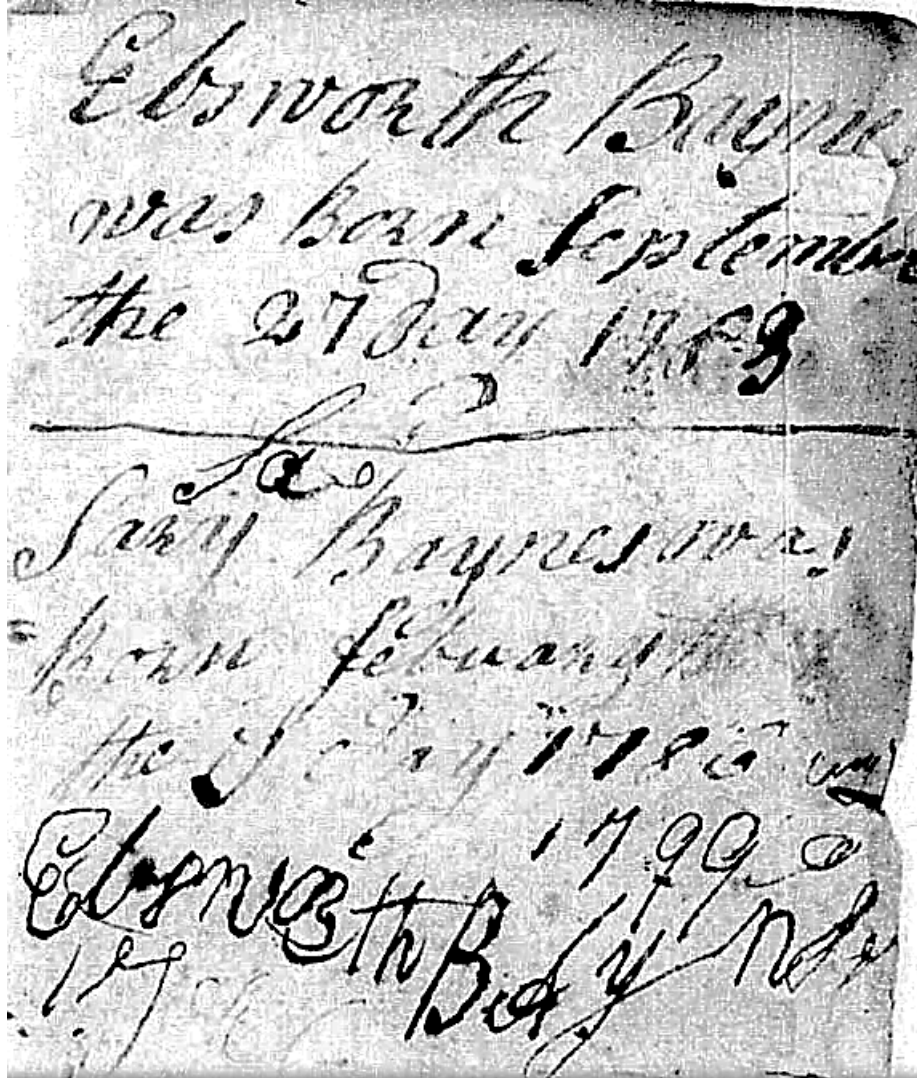 Ebsworth Bayne
was Born Septembe
the 27 Day 1783
Sa
Sary Baynes was
Born february
the Day 178
1799
Ebsworth Bayns